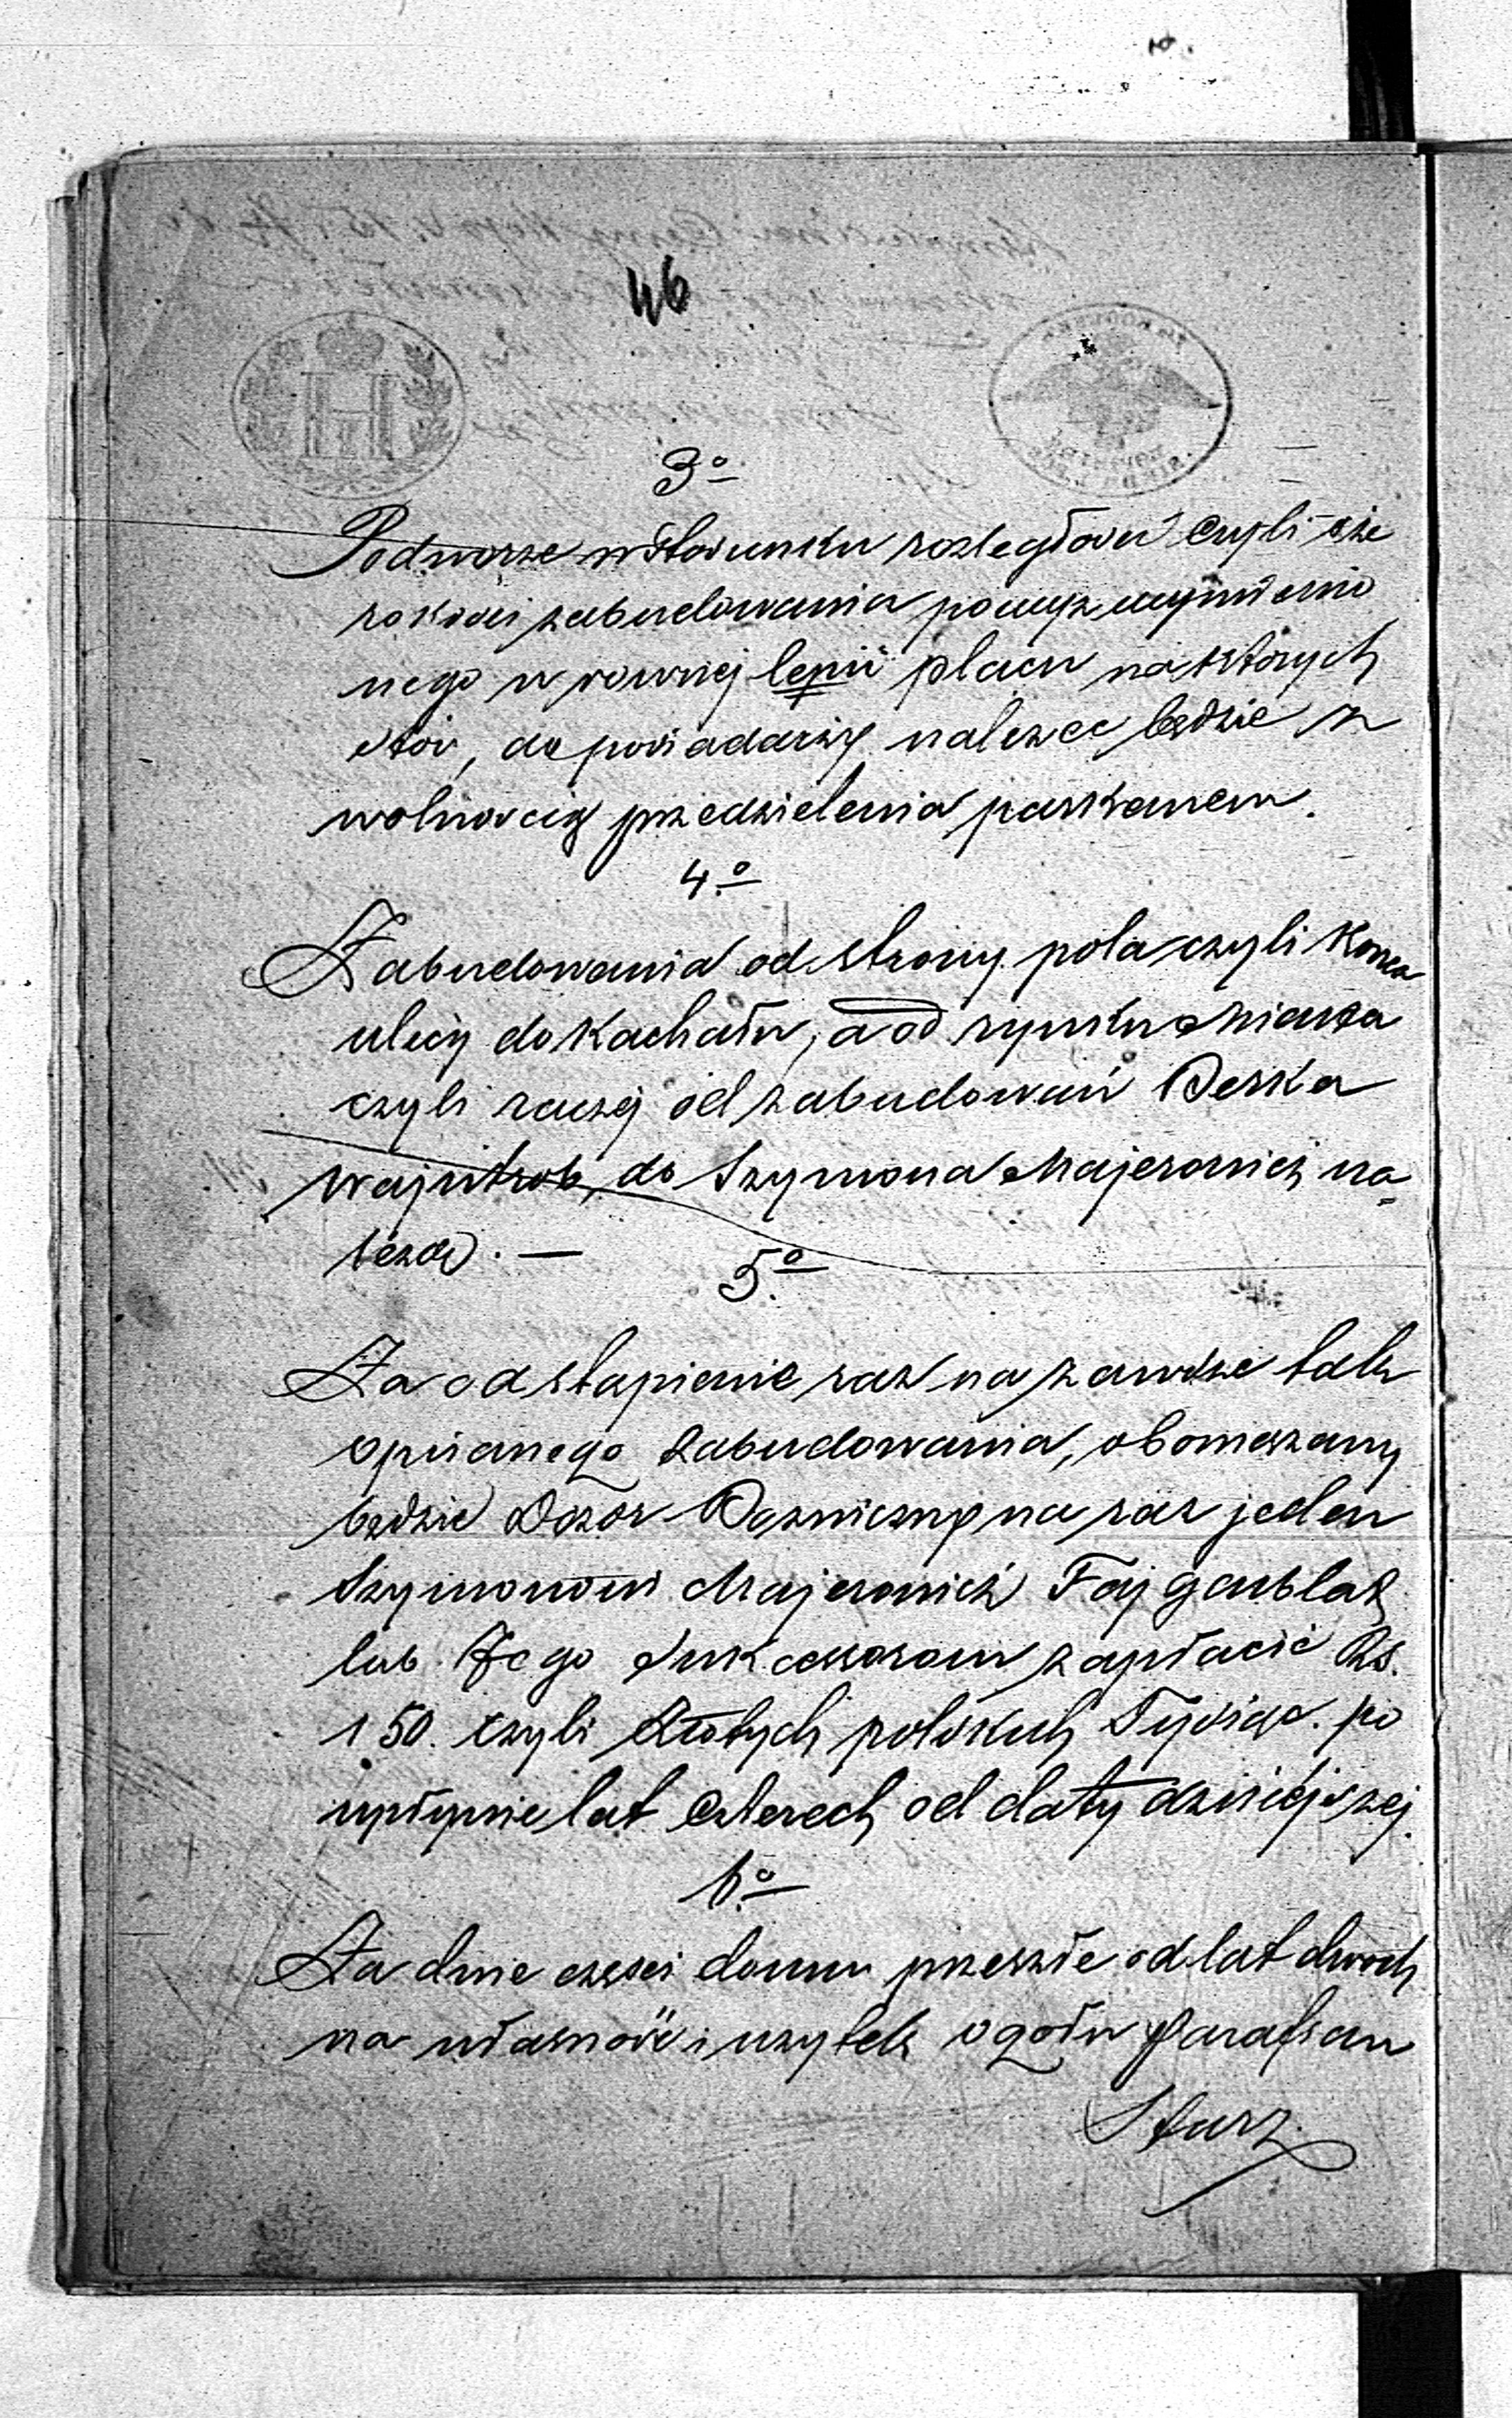 46
3º
Podworze w Stosunku rozległości Czyli sze
rokości zabudowania powyż wymienio
nego w rownej lenii placu na których
stoi, do posiadaczy nalezec będzie z
wolnoscią przedzielenia parkanem.
4.º
Zabudowania od strony pola czyli Konca
ulicy do Kachału, a od rynku Miasta
czyli raczej od zabudowań Berka
Wajntrob, do Szymona Majerowicz na
leżeć. —
5.º
Za odstapienie raz na zawsze tak
opisanego zabudowania, obowiazany
będzie Dozor Bozniczny na raz jeden
Szymonowi Majerowicz Fajganblat
lub Jego Sukcessorom zapłacić Rs.
150. czyli Złotych polskich Tysiąc. po
upłynie lat Czterech od daty dzisiejszej.
6.º
Za dwie częsci domu przeszłe od lat dwoch
na własność i uzytek ogołu Parafian
Starz.